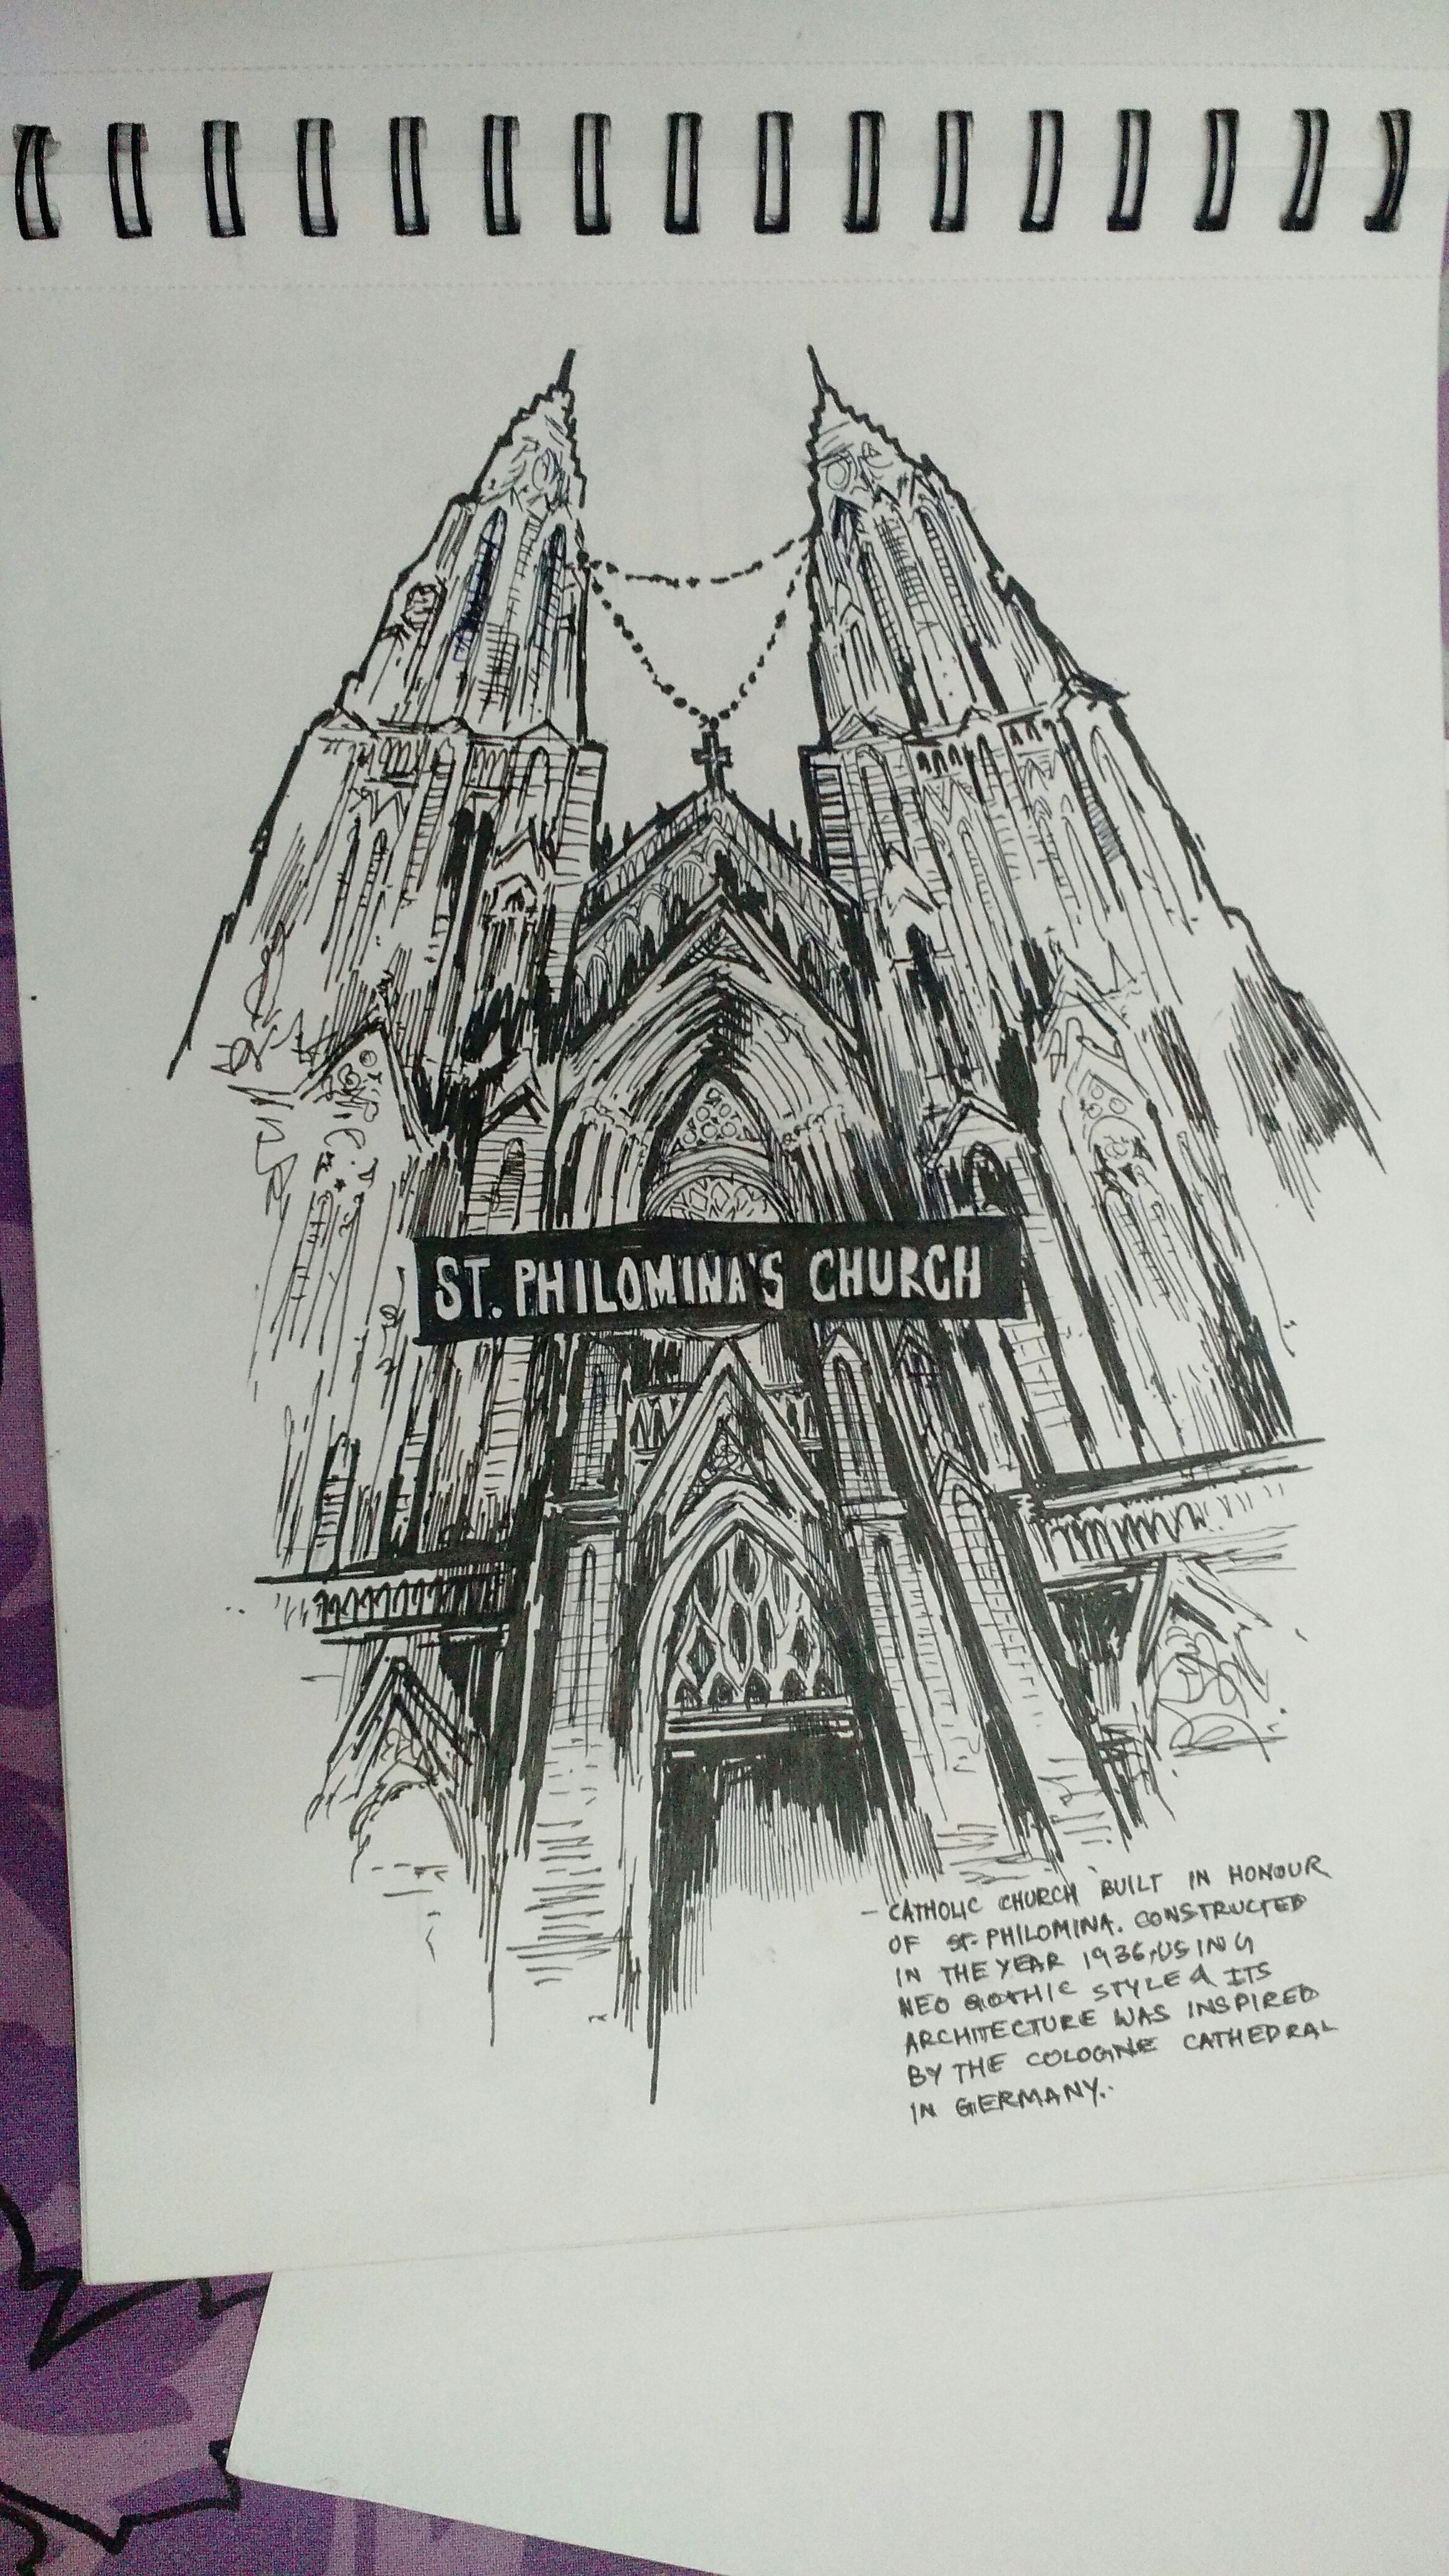 ST. PHILOMINA'S CHURCH
- CATHOLIC CHURCH BUILT IN HONOUR
OF ST. PHILOMINA. CONSTRUCTED
IN THE YEAR 1936, USING
NEO GOTHIC STYLE & ITS
ARCHITECTURE WAS INSPIRED
BY THE COLOGNE CATHEDRAL
IN GERMANY..